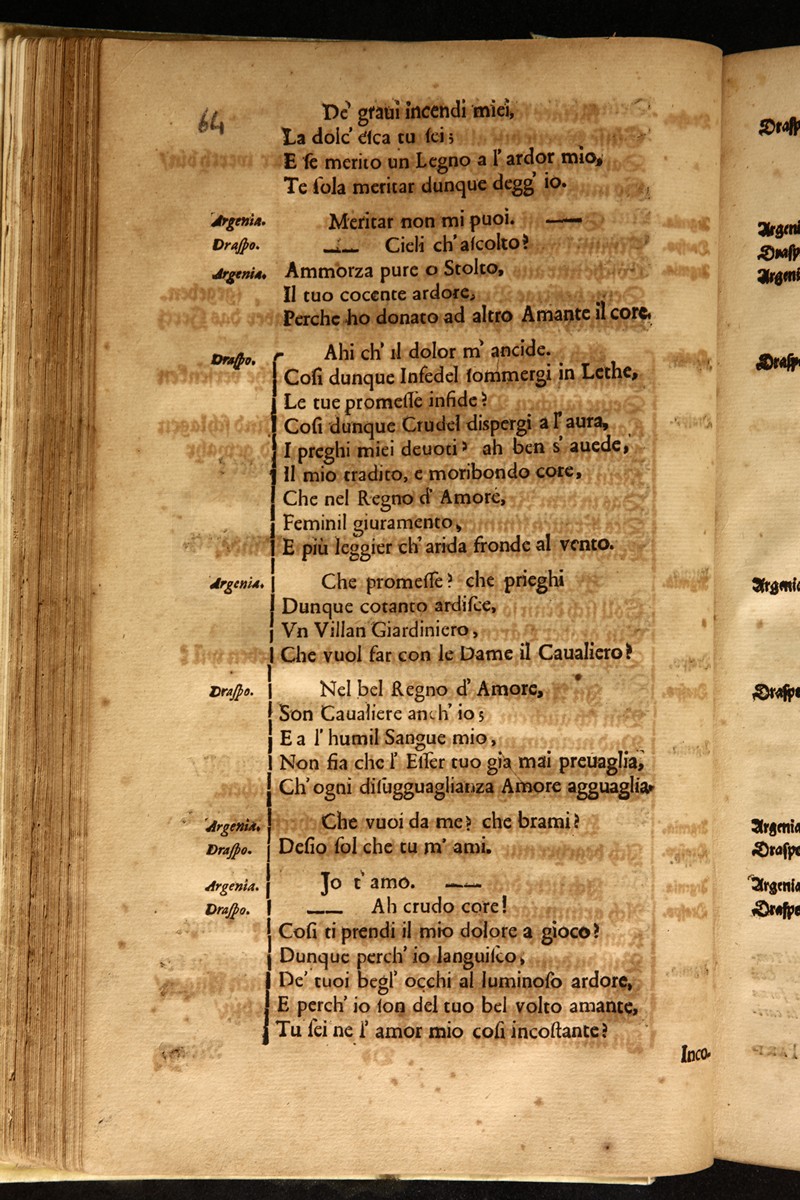 64
De' graui incendi miei,
La dolc' esca tu sei;
E se merito un Legno a l' ardor mio,
Te sola meritar dunque degg' io.
Argenia. Meritar non mi puoi. ——
Draspo. —— Cieli ch' ascolto?
Argenia. Ammorza pure o Stolto,
Il tuo cocente ardore,
Perche ho donato ad altro Amante il core.
Draspo. Ahi ch' il dolor m' ancide.
Cosi dunque Infedel sommergi in Lethe,
Le tue promesse infide?
Cosi dunque Crudel dispergi a l' aura,
I preghi miei deuoti? ah ben s' auede,
Il mio tradito, e moribondo core,
Che nel Regno d' Amore,
Feminil giuramento,
E più leggier ch' arida fronde al vento.
Argenia. Che promesse? che prieghi
Dunque cotanto ardisce,
Vn Villan Giardiniero,
Che vuol far con le Dame il Caualiero?
Draspo. Nel bel Regno d' Amore,
Son Caualiere anch' io;
E a l' humil Sangue mio,
Non fia che l' Esser tuo gia mai preuaglia,
Ch' ogni disugguaglianza Amore agguaglia,
Argenia. Che vuoi da me? che brami?
Draspo. Desio sol che tu m' ami.
Argenia. Jo t' amo. ——
Draspo. —— Ah crudo core!
Cosi ti prendi il mio dolore a gioco?
Dunque perch' io languisco,
De' tuoi begl' occhi al luminoso ardore,
E perch' io son del tuo bel volto amante,
Tu sei ne l' amor mio cosi incostante?
Inco-